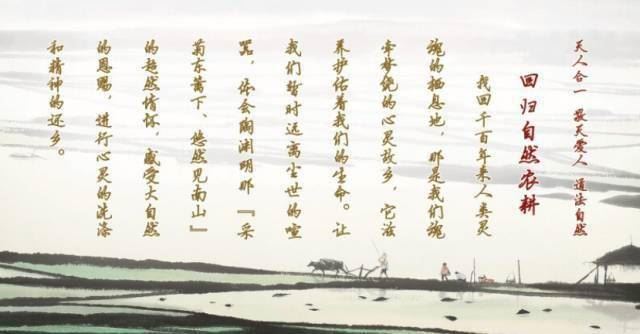 天人合一 敬天爱人 道法自然
回归自然农耕
找回千百年来人类灵
魂的栖息地，那是我们魂
牵梦绕的心灵故乡，它滋
养护佑着我们的生命。让
我们暂时远离尘世的喧
嚣，体会陶渊明那『采
菊东篱下、悠然见南山』
的超然情怀，感受大自然
的恩赐，进行心灵的洗涤
和精神的还乡。